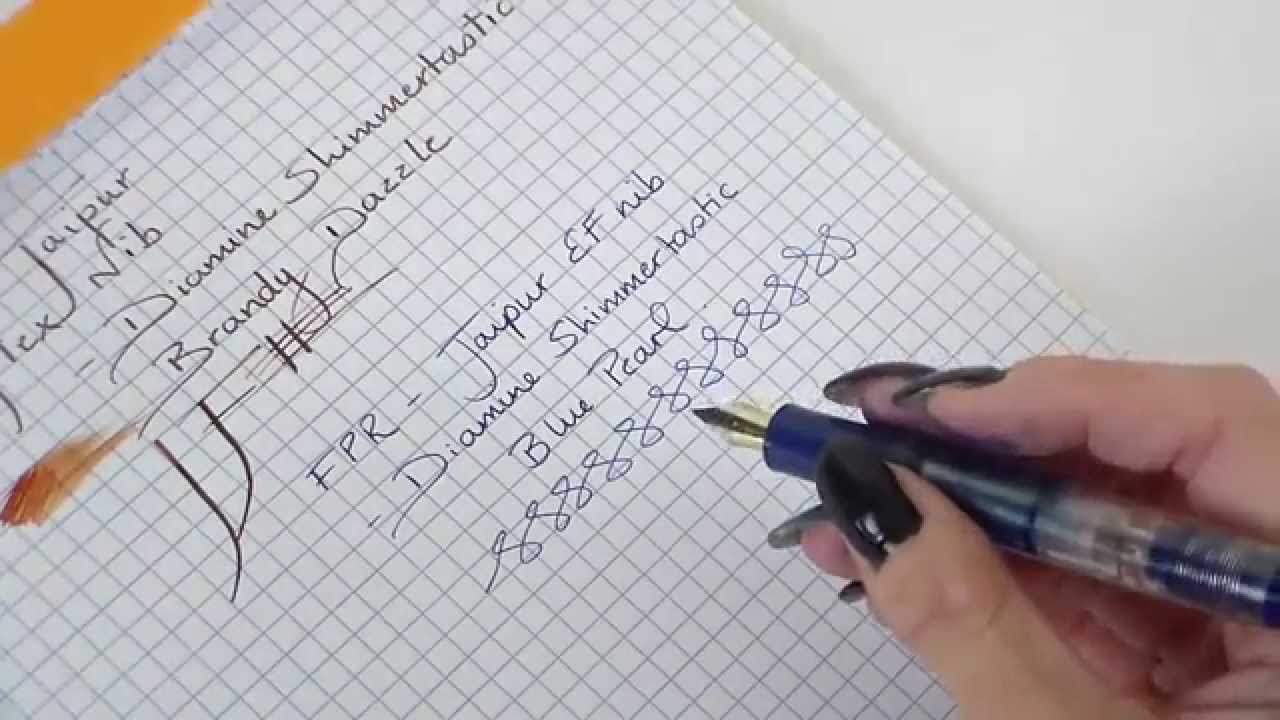 Jaipur
Nib
- Diamine Shimmertastic
Brandy Dazzle
FPR - Jaipur EF nib
- Diamine Shimmertastic
Blue Pearl